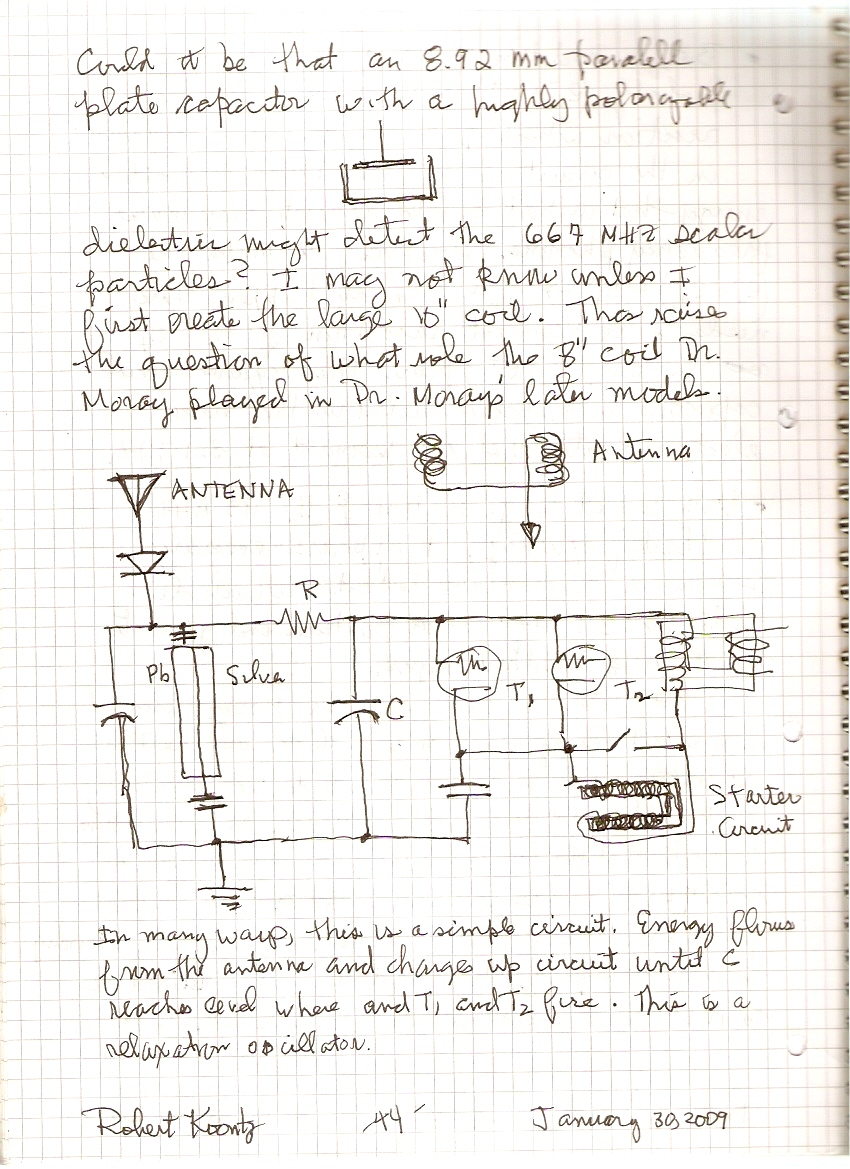 Could it be that an 8.92 mm paralell
plate capacitor with a highly polarizable
dielectric might detect the 667 MHZ scalar
particles? I may not know unless I
first create the large 10" coil. This raises
the question of what role the 8" coil Dr.
Moray played in Dr. Moray's later models.
Antenna
ANTENNA
R
Pb
Silver
C
T1
T2
Starter
Circuit
In many ways, this is a simple circuit. Energy flows
from the antenna and charges up circuit until C
reaches level where and T1 and T2 fire. This is a
relaxation oscillator.
Robert Koontz
January 30, 2009